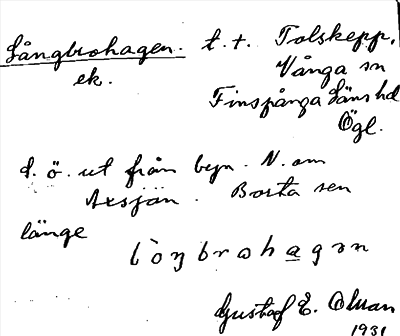 Långbrohagen. t. t. Tolskepp,
ek. Vånga sn
Finspånga läns hd
Ögl.
d. ö. ut från byn. N. om
Axsjön. Borta sen
länge
Gustaf E.
1931